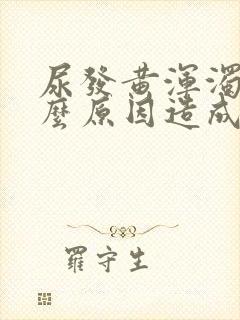 尿發黃渾濁
麼原因造成
羅守生